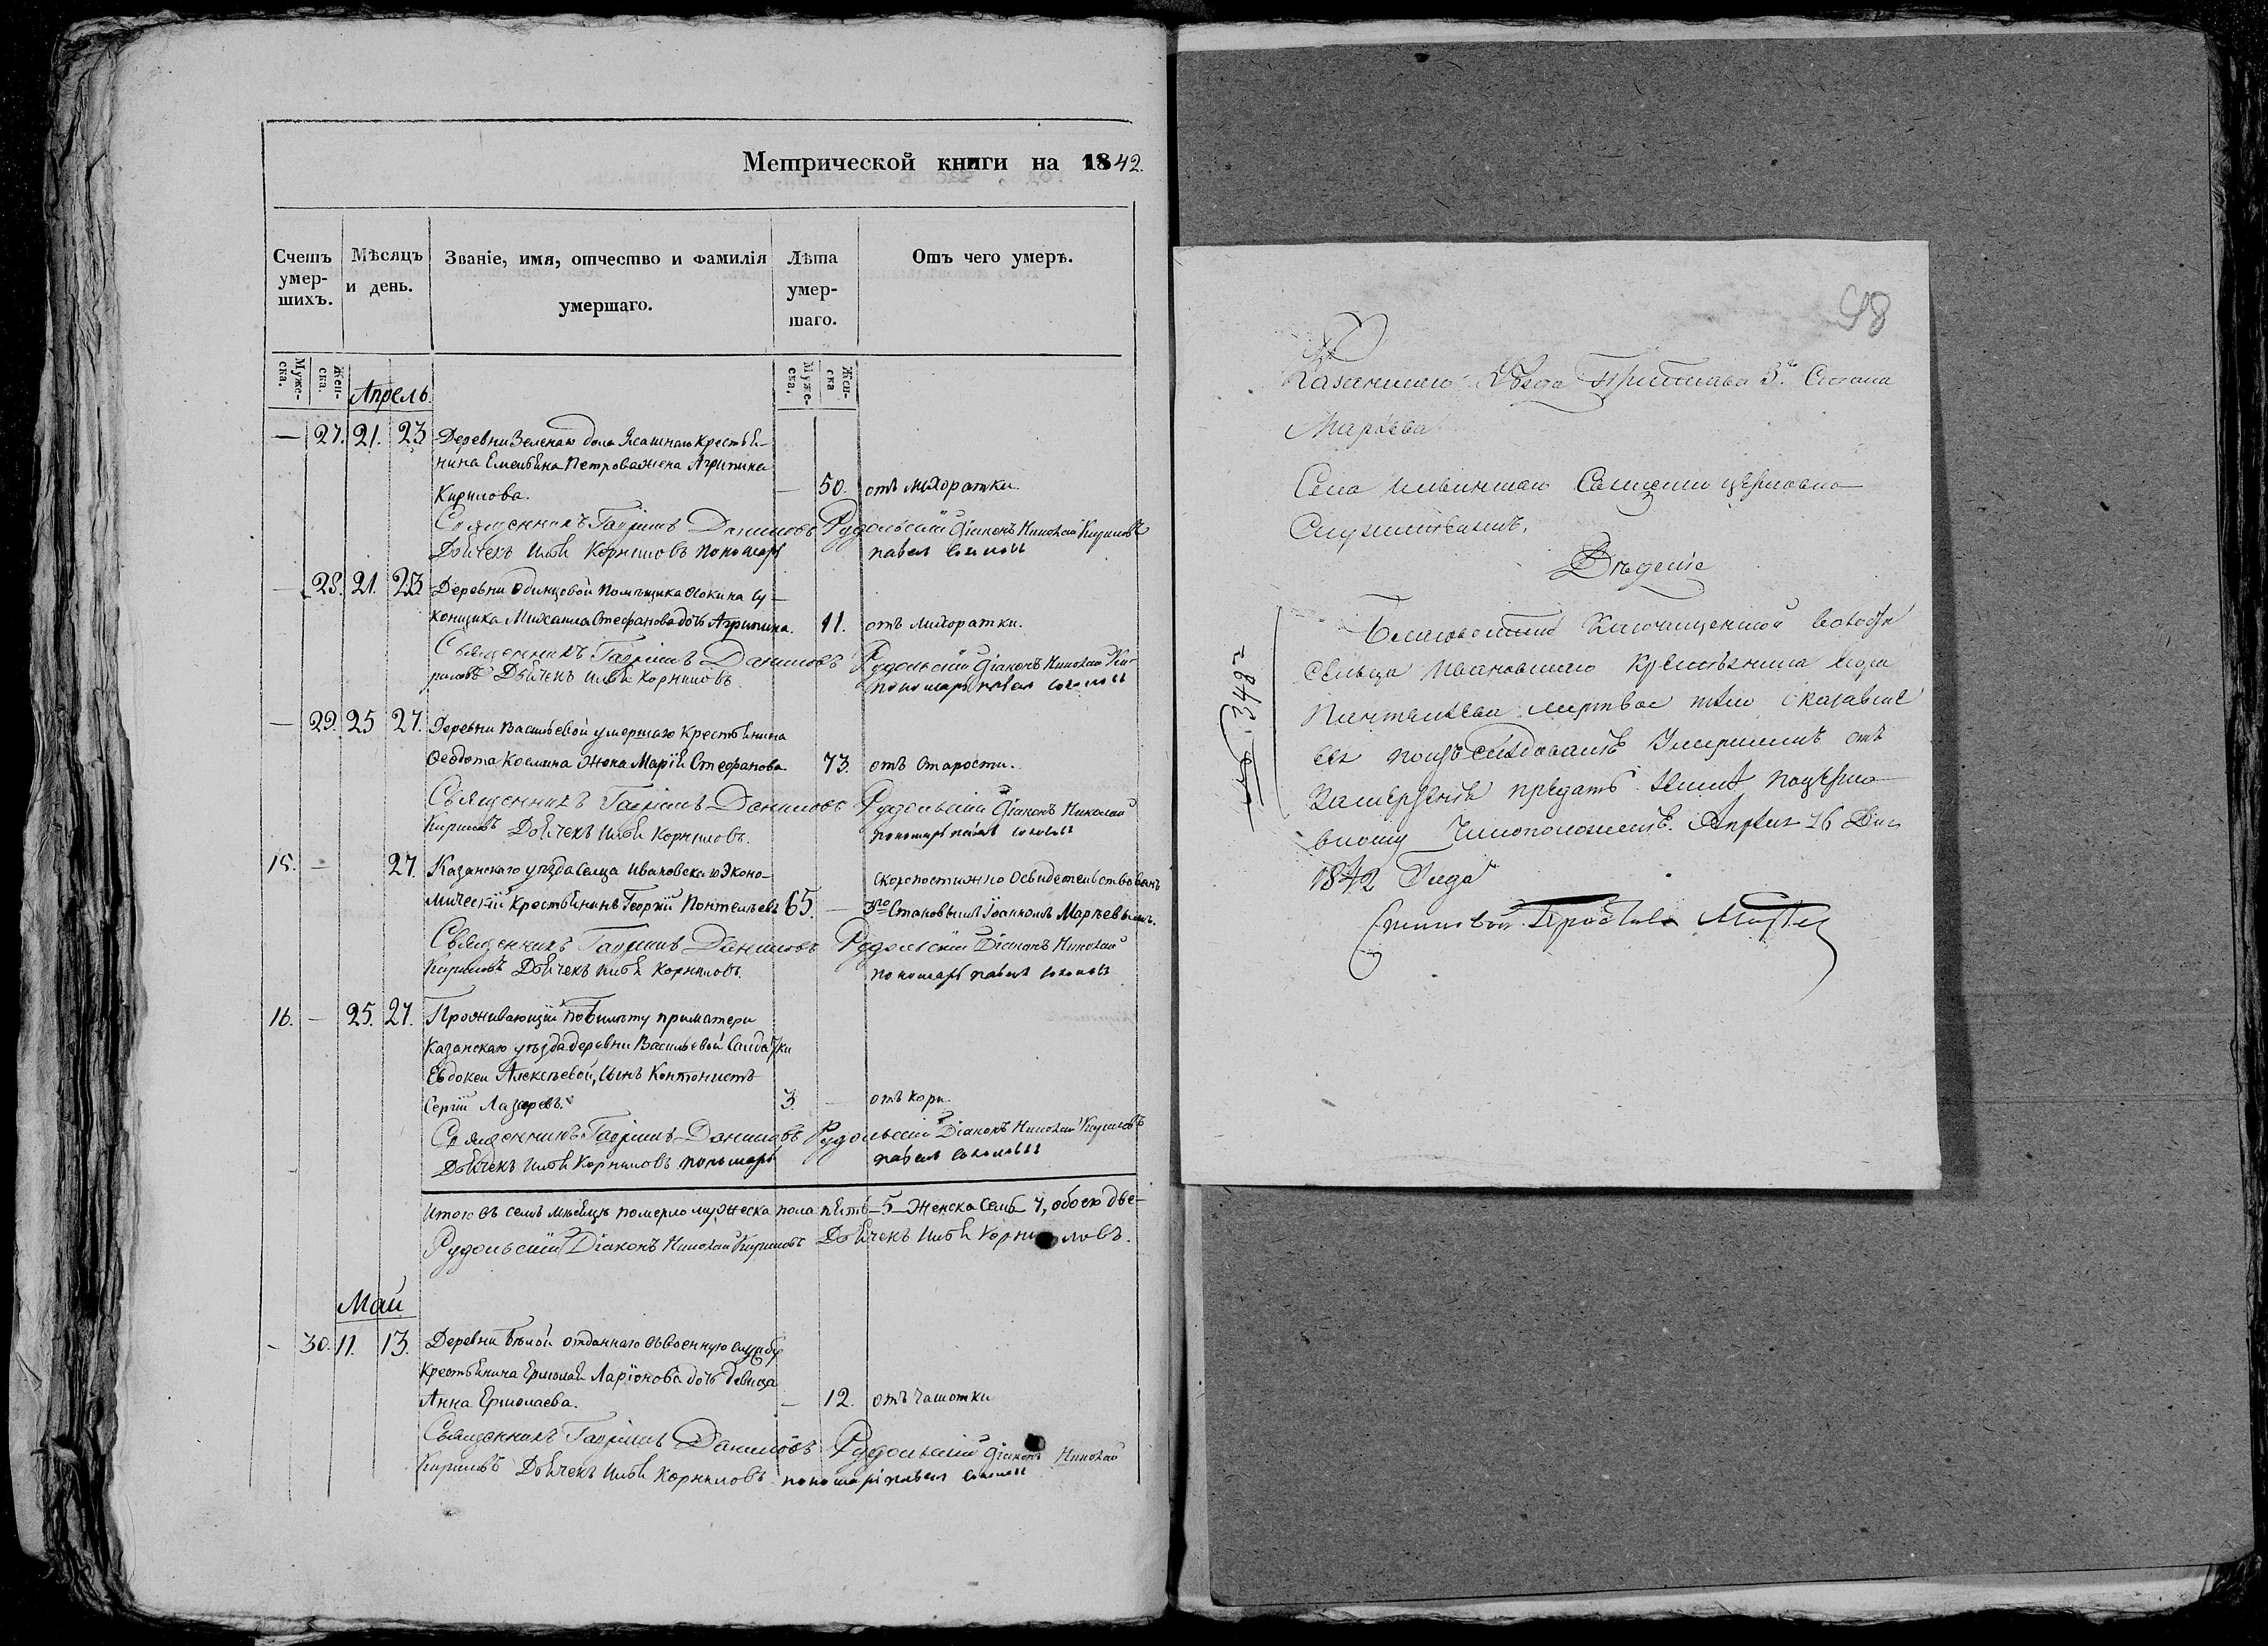 Метрической книги на 1842.
Счетъ умер-шихъ.
Мѣсяцъ и день.
Званіе, имя, отчество и фамилія умершаго.
Лѣта умер-шаго.
Отъ чего умеръ.
Муже-ска.
Жен-ска.
Муже-ска.
Жен-ска
Апрель.
— 27. 21. 23 Деревни Зеленаго дола Ясашнаго Крестья-
нина Емельяна Петрова жена Агрипина
Кирилова. — 50. отъ лихоратки.
Священникъ Гавріилъ Даниловъ Рудольскій Діаконъ Николай Кириловъ
Дьячекъ Илья Корниловъ пономарь павелъ соколовъ
— 28. 21. 23 Деревни Одинцовой Помѣщика Осокина Су-
конщика Михаила Стефанова дочь Агрипина. 11. отъ лихоратки.
Священникъ Гавріилъ Даниловъ Рудольскій Діаконъ Николай Ки-
риловъ Дьячекъ Илья Корниловъ. пономарь павелъ соколовъ
— 29. 25 27. Деревни Васильевой умершаго Крестьянина
Ѳеодота Космина жена Марія Стефанова 73. отъ Старости.
Священникъ Гавріилъ Даниловъ Рудольскій Діаконъ Николай
Кириловъ Дьячекъ Илья Корниловъ. пономарь павелъ соколовъ
15. — 27. Казанскаго уѣзда Селца Ивановскаго Эконо- скоропостижно Освидетельствованъ
мическій Крестьянинъ Георгій Понтелѣевъ 65. — 3го Становымъ Іоанномъ Марѣевымъ.
Священникъ Гавріилъ Даниловъ Рудольскій Діаконъ Николай
Кириловъ Дьячекъ Илья Корниловъ. пономарь павелъ соколовъ
16. — 25. 27. Проживающій по билѣту при матери
Казанскаго уѣзда деревни Васильевой Салдатки
Евдокеи Алексѣевой, сынъ Кантонистъ
Сергій Лазаревъ. 3. — отъ кори.
Священникъ Гавріилъ Даниловъ Рудольскій Діаконъ Николай Кириловъ
Дьячекъ Илья Корниловъ пономарь павелъ соколовъ
Итого въ семъ мѣсяцѣ померло мужеска пола пять — 5 — Женска Семь 7, обоего две-
Рудольскій Діаконъ Николай Кириловъ Дьячекъ Илья Корниловъ.
Май
- 30. 11. 13. Деревни Бѣлой отданнаго въ военную службу
Крестьянина Ермолая Ларіонова дочь девица
Анна Ермолаева. — 12. отъ чахотки
Священникъ Гавріилъ Даниловъ Рудольскій Діаконъ Николай
Кириловъ Дьячекъ Илья Корниловъ пономарь павелъ соколовъ
48
Казанскаго Уѣзда Пристава 3го Стана
Марѣева
Села Священно церковно
Служителямъ.
Вѣденіе
Ключищенской волости
сельца Ивановскаго Крестьянина Егора
Пантелѣева мертвое тѣло оказавше
еся поизъслѣдованіе Умершимъ отъ
предать землѣ поцерко
вному Чиноположенію. Апреля 26 Дня
1842 Года
Становой Приставъ
№ 348